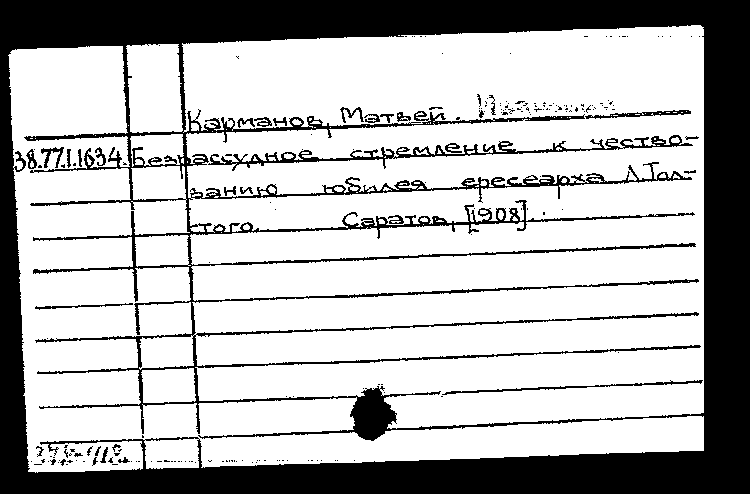 Карманов, Матвей. Иванович
38.77.1.1634. Безрассудное стремление к чество-
ванию юбилея ересеарха Л.Тол-
стого. Саратов, [1908].